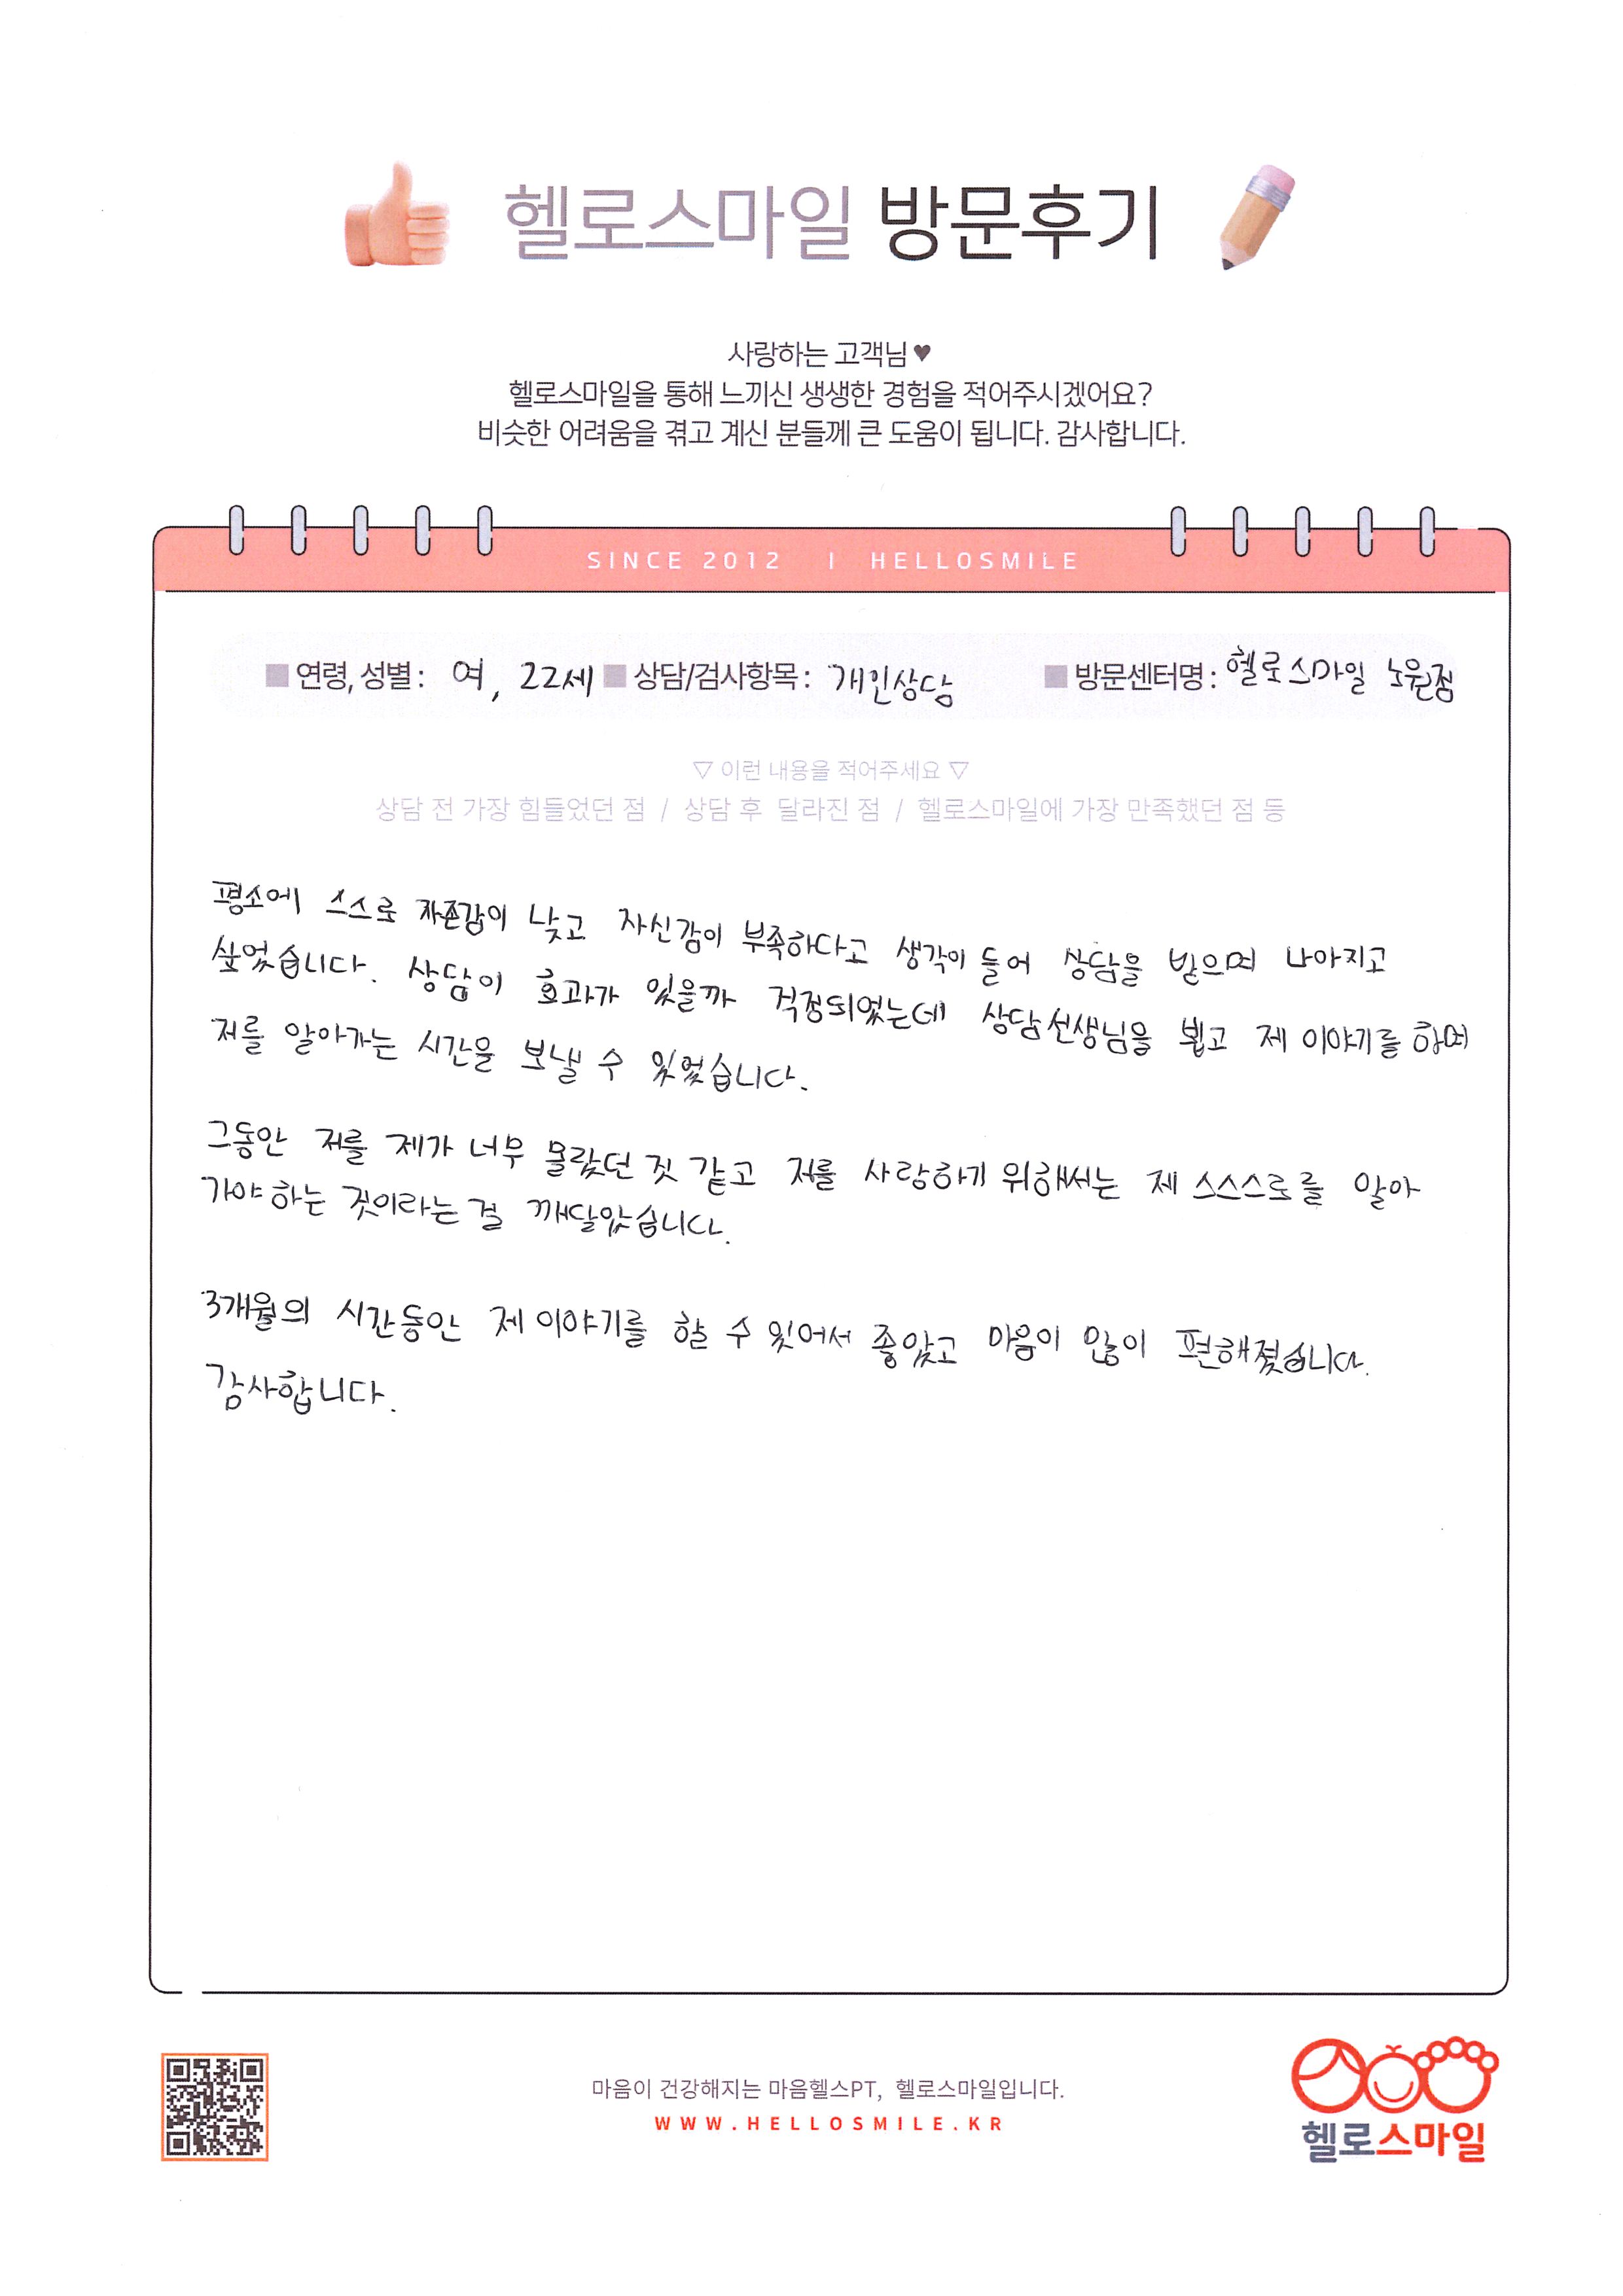 헬로스마일 방문후기
사랑하는 고객님♥
헬로스마일을 통해 느끼신 생생한 경험을 적어주시겠어요?
비슷한 어려움을 겪고 계신 분들께 큰 도움이 됩니다. 감사합니다.
SINCE 2012 | HELLOSMILE
■ 연령, 성별 : 여, 22세 ■ 상담/검사항목 : 개인상담 ■ 방문센터명 : 헬로스마일 노원점
▽ 이런 내용을 적어주세요 ▽
상담 전 가장 힘들었던 점 / 상담 후 달라진 점 / 헬로스마일에 가장 만족했던 점 등
평소에 스스로 자존감이 낮고 자신감이 부족하다고 생각이 들어 상담을 받으며 나아지고
싶었습니다. 상담이 효과가 있을까 걱정되었는데 상담선생님을 뵙고 제 이야기를 하며
저를 알아가는 시간을 보낼 수 있었습니다.
그동안 저를 제가 너무 몰랐던 것 같고 저를 사랑하기 위해서는 제 스스스로를 알아
가야 하는 것이라는 걸 깨달았습니다.
3개월의 시간동안 제 이야기를 할 수 있어서 좋았고 마음이 많이 편해졌습니다.
감사합니다.
마음이 건강해지는 마음헬스PT, 헬로스마일입니다.
WWW.HELLOSMILE.KR
헬로스마일